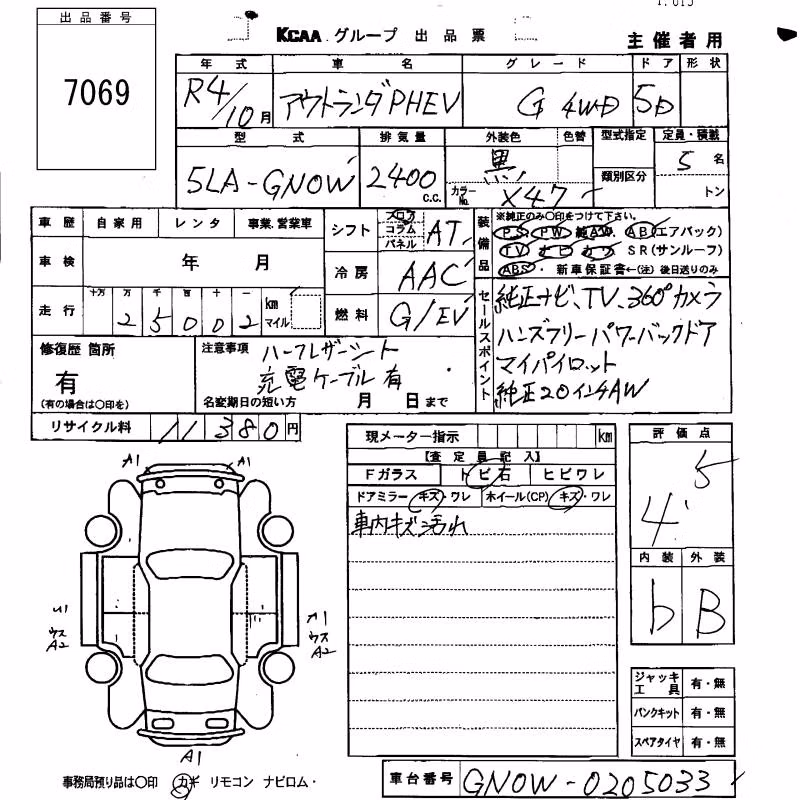 出品番号
7069
KCAA グループ 出品票
主催者用
年式 車名 グレード ドア 形状
R4/10月 アウトランダPHEV G 4WD 5D
型式 排気量 外装色 色替 型式指定 定員・積載
5LA-GN0W 2400 c.c. 黒 カラーNo. X47 類別区分 5名 トン
車歴 自家用 レンタ 事業、営業車
シフト フロア コラム パネル AT
装備品 ※純正のみ〇印をつけて下さい。
PS PW 純AW AB(エアバック)
TV ナビ カワ SR(サンルーフ)
ABS・ 新車保証書←(注)後日送りのみ
車検 年 月
冷房 AAC
走行 十万 万 千 百 十 一
25002 km マイル
燃料 G/EV
セールスポイント
純正ナビ、TV、360°カメラ
ハンズフリーパワーバックドア
マイパイロット
純正20インチAW
修復歴 箇所
有
(有の場合は〇印を)
注意事項 ハーフレザーシート
充電ケーブル有
名変期日の短い方 月 日まで
リサイクル料 11380円
現メーター指示 km
【査定員記入】
Fガラス トビ石 ヒビワレ
ドアミラー キズ・ワレ ホイール(CP) キズ・ワレ
車内キズ汚れ
評価点
5
4
内装 外装
b B
A1 A1
U1
ウス
A2
A1
ウス
A2
A1
ジャッキ工具 有・無
パンクキット 有・無
スペアタイヤ 有・無
事務局預り品は〇印 カギ リモコン ナビロム・
車台番号 GN0W-0205033